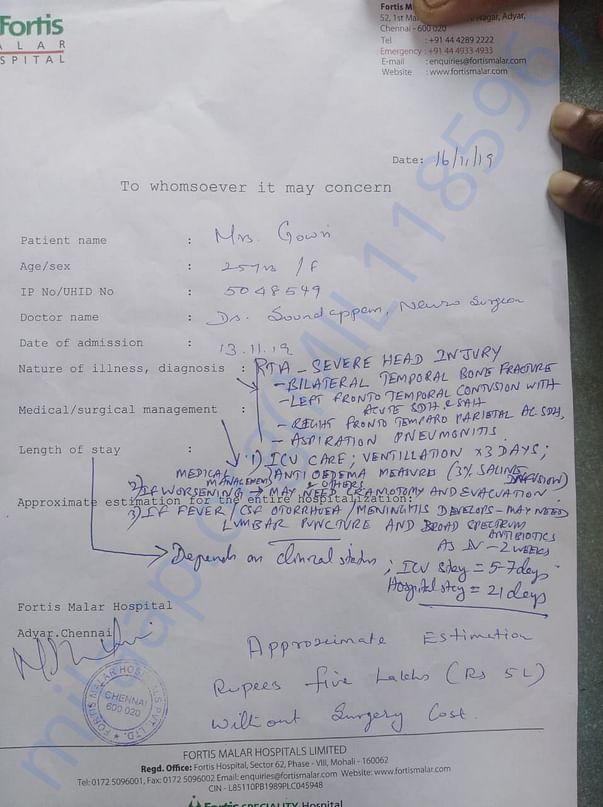 Fortis
ALAR
SPITAL
Fortis M
52, 1st Mai Nagar, Adyar,
Chennai - 600 020
Tel : +91 44 4289 2222
Emergency : +91 44 4933 4933
E-mail : enquiries@fortismalar.com
Website : www.fortismalar.com
Date: 16/11/19
To whomsoever it may concern
Patient name : Mrs. Gowri
Age/sex : 25yrs /F
IP No/UHID No : 5048549
Doctor name : Dr. Soundappan, Neuro Surgeon
Date of admission : 13.11.19
Nature of illness, diagnosis : RTA - SEVERE HEAD INJURY
- BILATERAL TEMPORAL BONE FRACTURE
- LEFT FRONTO TEMPORAL CONTUSION WITH
ACUTE SDH & SAH
Medical/surgical management :
- RIGHT FRONTO TEMPARO PARIETAL AC SDH,
- ASPIRATION PNEUMONITIS
Length of stay : 1) ICU CARE; VENTILLATION x3 DAYS;
MEDICAL MANAGEMENT ANTI OEDEMA MEASURE (3% SALINE INFUSION)
& OTHERS
2) IF WORSENING → MAY NEED CRANIOTOMY AND EVACUATION
Approximate estimation for the entire hospitalization:
3) IF FEVER / CSF OTORRHOEA / MENINGITIS DEVELOPS - MAY NEED
LUMBAR PUNCTURE AND BROAD SPECTRUM
ANTIBIOTICS
AS IV - 2 WEEKS
Depends on clinical status; ICU stay = 5-7 days
Hospital stay = 21 days
Fortis Malar Hospital
Adyar.Chennai
Approximate Estimation
Rupees five Lakhs (Rs 5L)
without Surgery Cost.
FORTIS MALAR HOSPITALS PVT. LTD.
CHENNAI
600 020
FORTIS MALAR HOSPITALS LIMITED
Regd. Office: Fortis Hospital, Sector 62, Phase - VIII, Mohali - 160062
Tel: 0172 5096001, Fax: 0172 5096002 Email: enquiries@fortismalar.com Website: www.fortismalar.com
CIN - L85110PB1989PLC045948
Fortis SPECIALITY Hospital